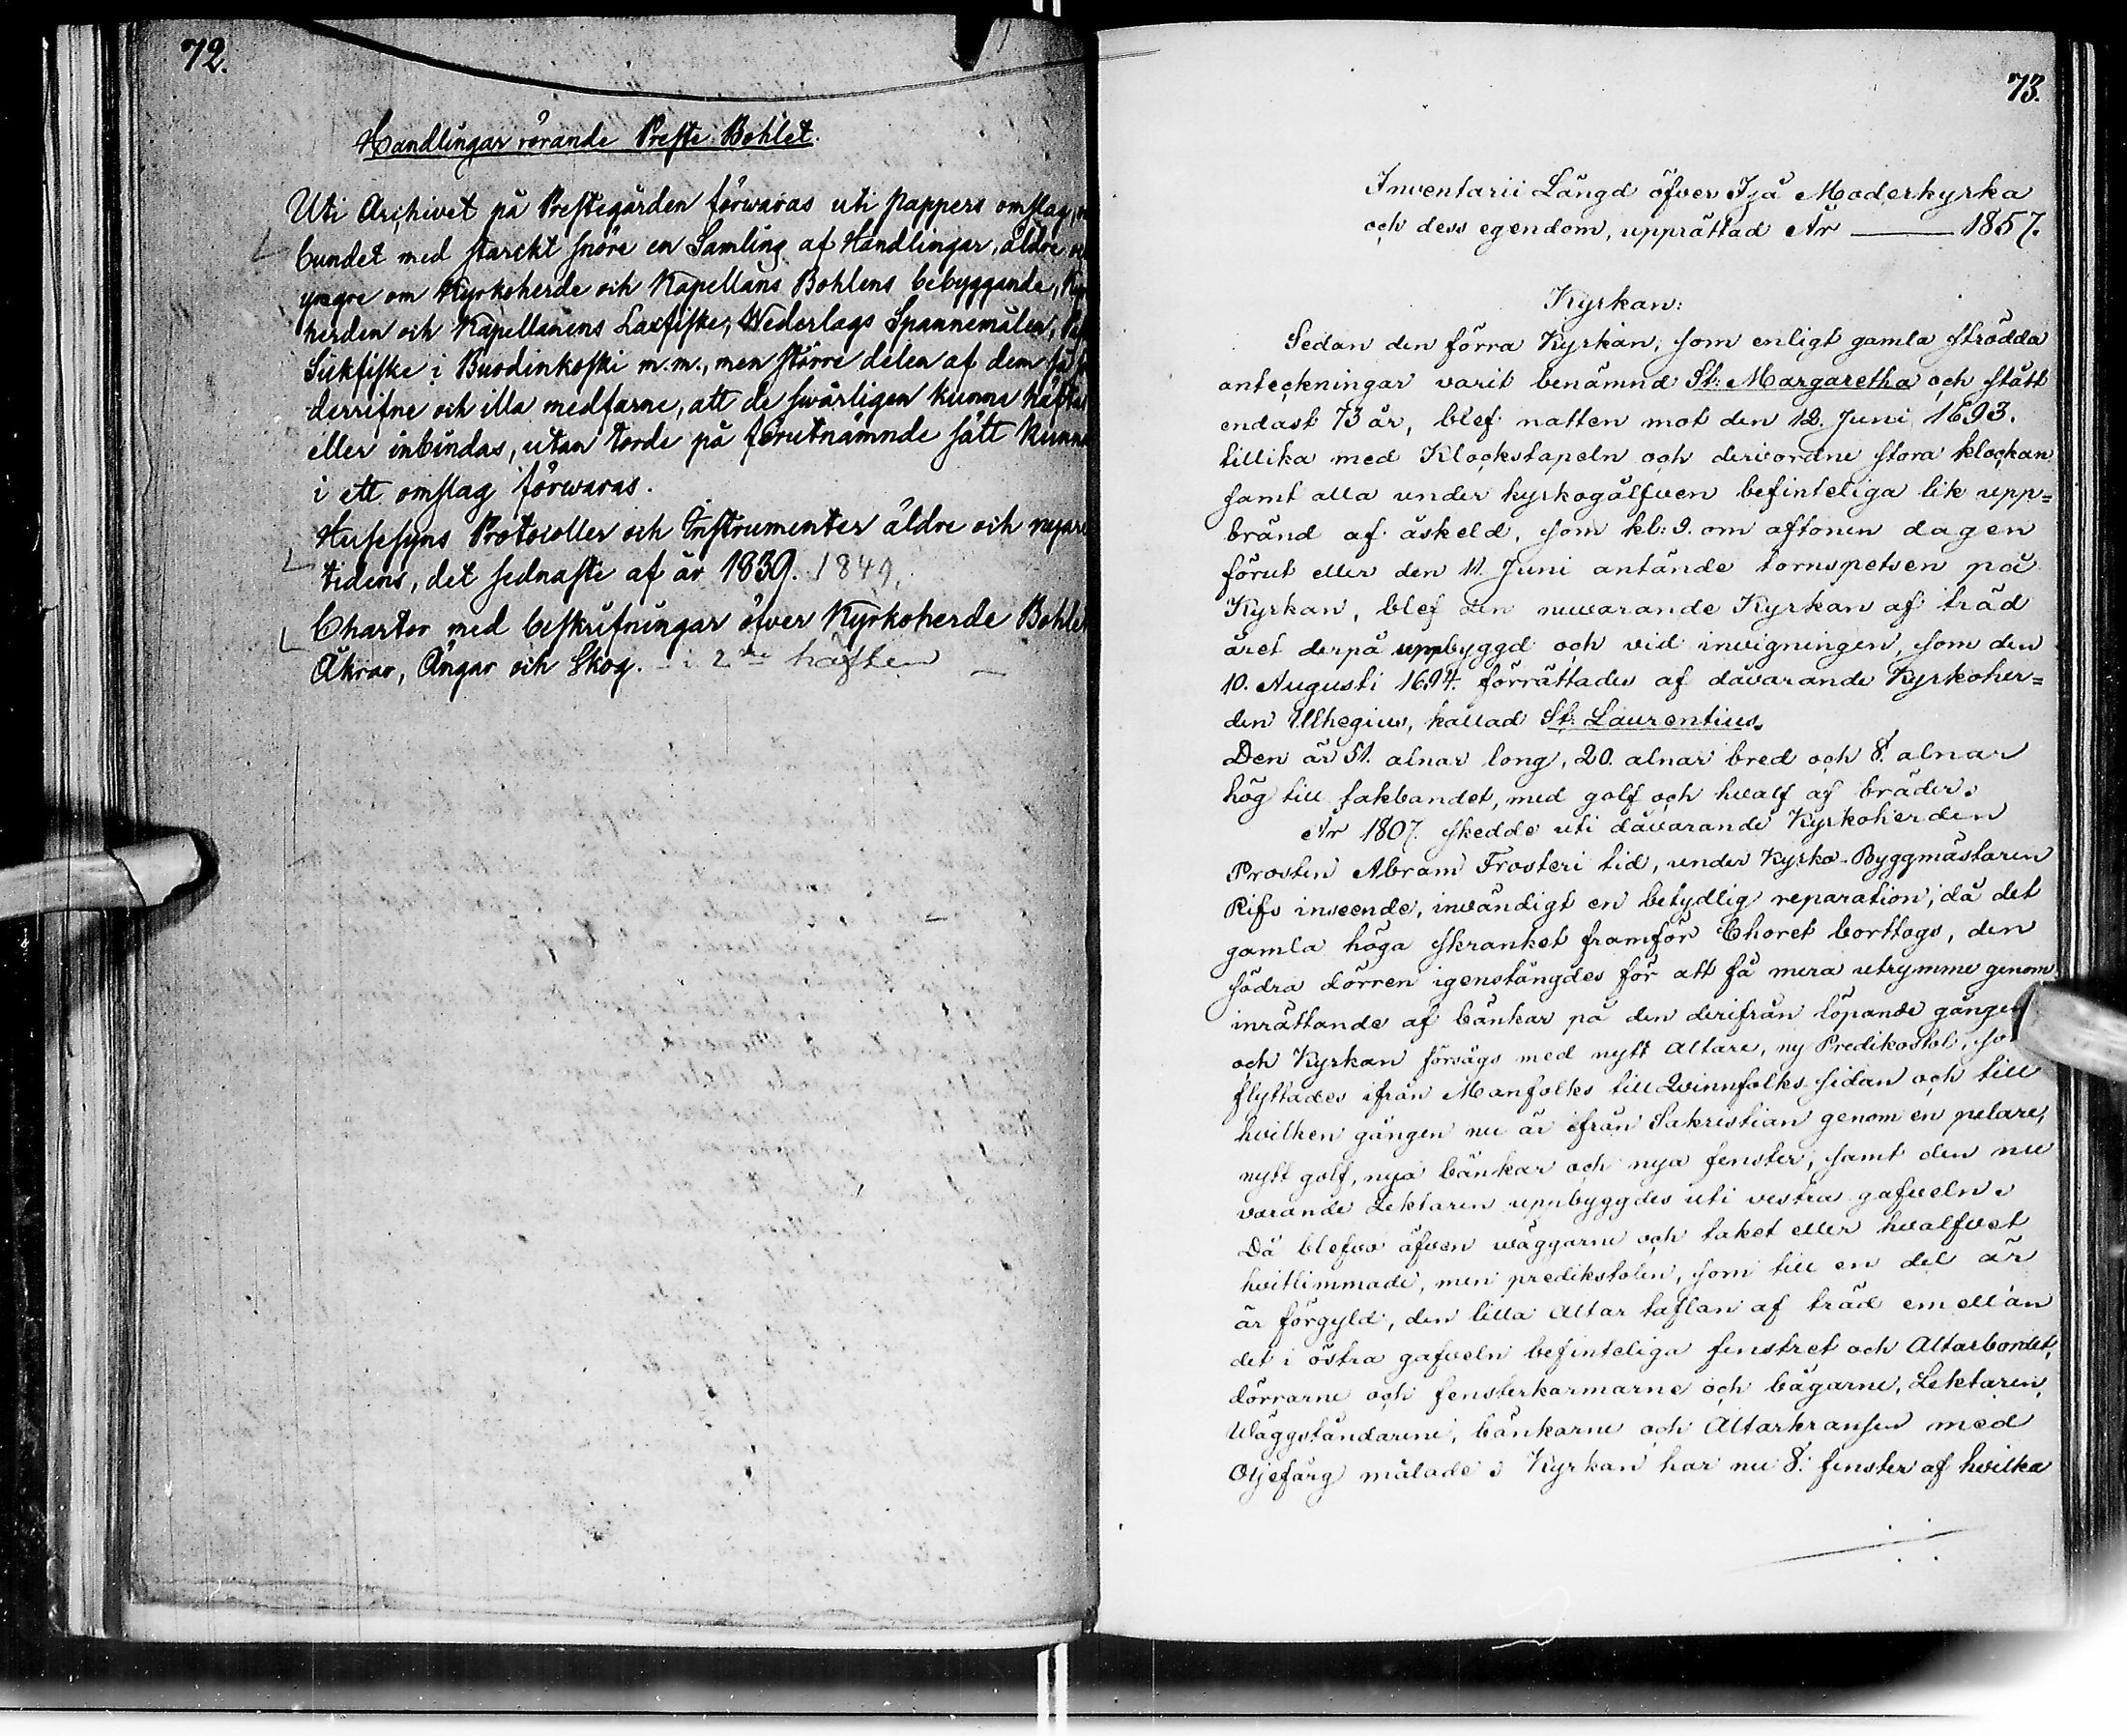 72.
Handlingar rörande Preste Bohlet.
Uti Archivet på Prestegården förwaras uti pappers omslag,
bundet med starckt snöre en Samling af Handlingar, äldre
yngre om Kyrkoherde och Kapellans Bohlens bebyggande,
herden och Kapellanens Laxfiske, Wederlags Spannemålen,
Sikfiske i Buodinkoski m.m., men större delen af dem så
derrifne och illa medfarne, att de swårligen kunna häftas
eller inbindas, utan torde på förutnämnde sätt kunna
i ett omslag förwaras.
Husesyns Protocoller och Instrumenter äldre och nyare
tidens, det sednaste af år 1839. 1849.
Chartor med beskrifningar öfver Kyrkoherde Bohlet
Åkrar, Ängar och Skog. - i 2ne häften —
73.
Inventarii Längd öfver Ijå Moderkyrka
och dess egendom, upprättad År — 1857.
Kyrkan:
Sedan den förra Kyrkan, som enligt gamla strödda
anteckningar varit benämnd St: Margaretha och stått
endast 73 år, blef natten mot den 12. Juni 1693.
tillika med Klockstapeln och derivordne stora klockan
samt alla under kyrkogålfven befinteliga lik upp=
bränd af åskeld, som kl: 9. om aftonen dagen
förut eller den 11. Juni antände tornspetsen på
Kyrkan, blef den nuvarande Kyrkan af träd
året derpå uppbyggd och vid invigningen, som den
10. Augusti 1694. förrättades af dåvarande Kyrkoher=
den Ulhegius, kallad St: Laurentius.
Den är 51. alnar long, 20. alnar bred och 8. alnar
hög till takbandet, med golf och hvalf af bräder.
År 1807. skedde uti dåvarande Kyrkoherden
Prosten Abram Frosteri tid, under Kyrko-Byggmästaren
Rifs inseende, invändigt en betydlig reparation, då det
gamla höga skranket framför Choret borttogs, den
södra dörren igenstängdes för att få mera utrymme genom
inrättande af bänkar på den derifrån löpande gången
och Kyrkan försågs med nytt Altare, ny Predikostol,
flyttades ifrån Manfolks till Qvinnfolks sidan och till
hvilken gången nu är ifrån Sakristian genom en pelare,
nytt golf, nya bänkar och nya fenster, samt den nu
varande Lektaren uppbyggdes uti vestra gafveln.
Då blefvo äfven wäggarne och taket eller hvalfvet
hvitlimmade, men predikstolen, som till en del är
är förgyld, den lilla Altar taflan af träd emellan
det i östra gafveln befinteliga fenstret och Altarbordet,
dörrarne och fensterkarmarne och bågarne, Lektaren,
Wäggståndarene, bänkarne och Altarkransen med
Oljefärg målade. Kyrkan har nu 8. fenster af hvilka